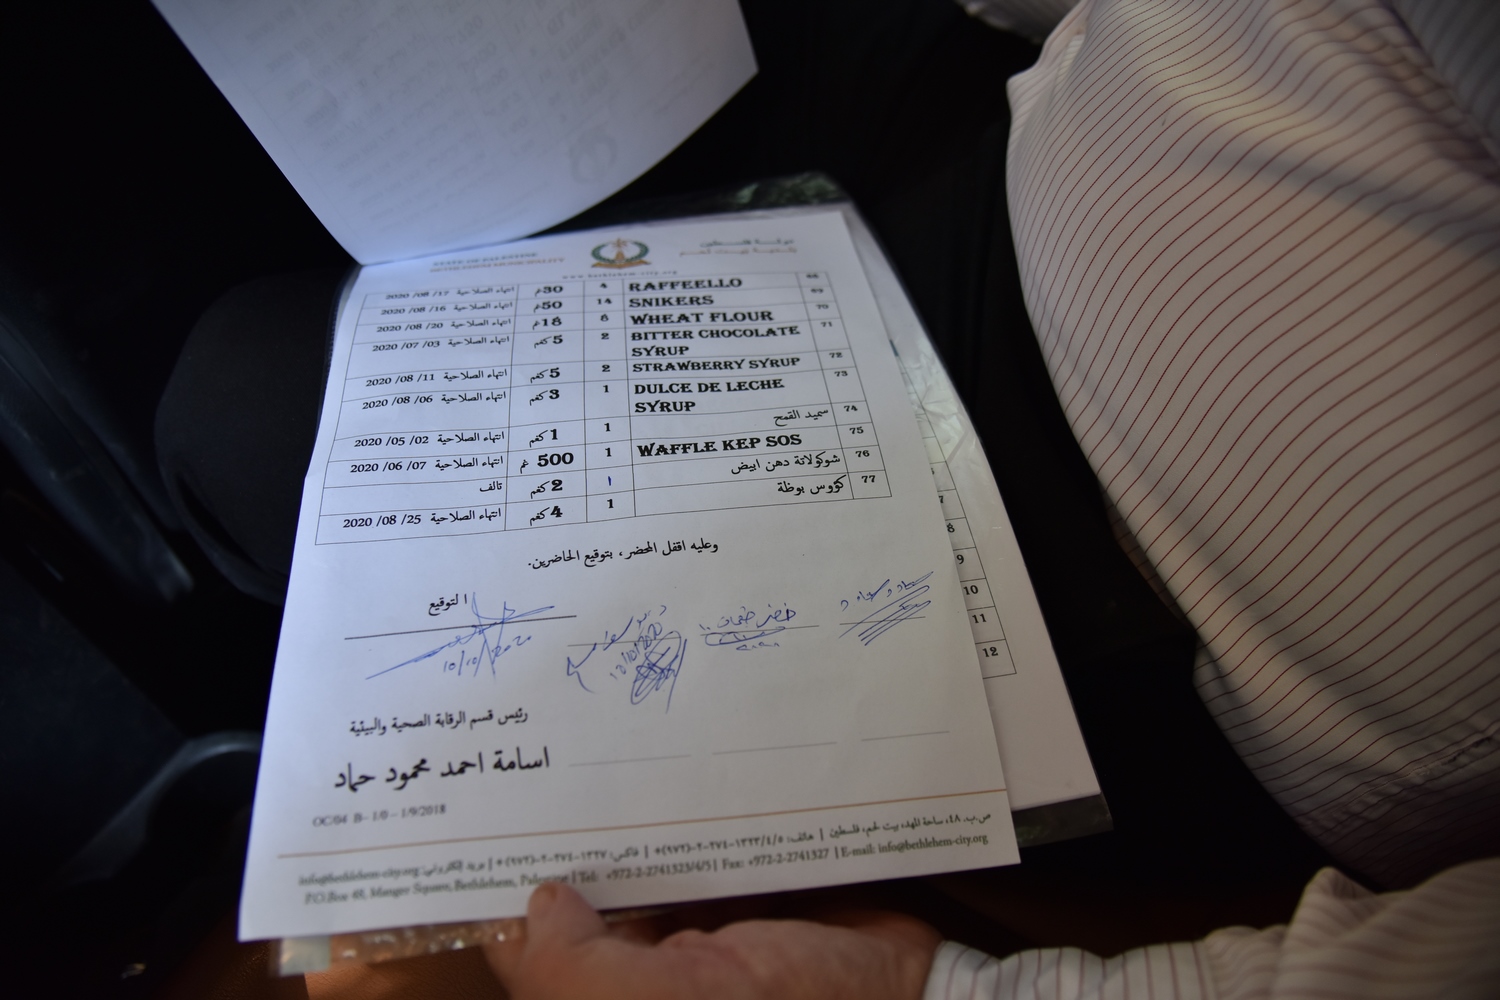 STATE OF PALESTINE دولة فلسطين
BETHLEHEM MUNICIPALITY بلدية بيت لحم
www.bethlehem-city.org
68 RAFFEELLO 4 30غم انتهاء الصلاحية 17/ 08/ 2020
69 SNIKERS 14 50غم انتهاء الصلاحية 16/ 08/ 2020
70 WHEAT FLOUR 8 18غم انتهاء الصلاحية 20/ 08/ 2020
71 BITTER CHOCOLATE SYRUP 2 5كغم انتهاء الصلاحية 03/ 07/ 2020
72 STRAWBERRY SYRUP 2 5كغم انتهاء الصلاحية 11/ 08/ 2020
73 DULCE DE LECHE SYRUP 1 3كغم انتهاء الصلاحية 06/ 08/ 2020
74 سميد القمح 1 1كغم انتهاء الصلاحية 02/ 05/ 2020
75 WAFFLE KEP SOS 1 500 غم انتهاء الصلاحية 07/ 06/ 2020
76 شوكولاتة دهن ابيض ١ 2كغم تالف
77 كؤوس بوظة 1 4كغم انتهاء الصلاحية 25/ 08/ 2020
وعليه اقفل المحضر ، بتوقيع الحاضرين.
التوقيع
10/10/2020
10/10/2020
رئيس قسم الرقابة الصحية والبيئية
اسامة احمد محمود حماد
OC/04 B- 1/0 – 1/9/2018
ص.ب. ٤٨، ساحة المهد، بيت لحم، فلسطين | هاتف: ٥/٤/١٣٢٣-٢٧٤-٢-(٩٧٢)+ | فاكس: ١٣٢٧-٢٧٤-٢-(٩٧٢)+ | بريد إلكتروني: info@bethlehem-city.org
P.O.Box 48, Manger Square, Bethlehem, Palestine | Tel: +972-2-2741323/4/5 | Fax: +972-2-2741327 | E-mail: info@bethlehem-city.org
7
8
9
10
11
12